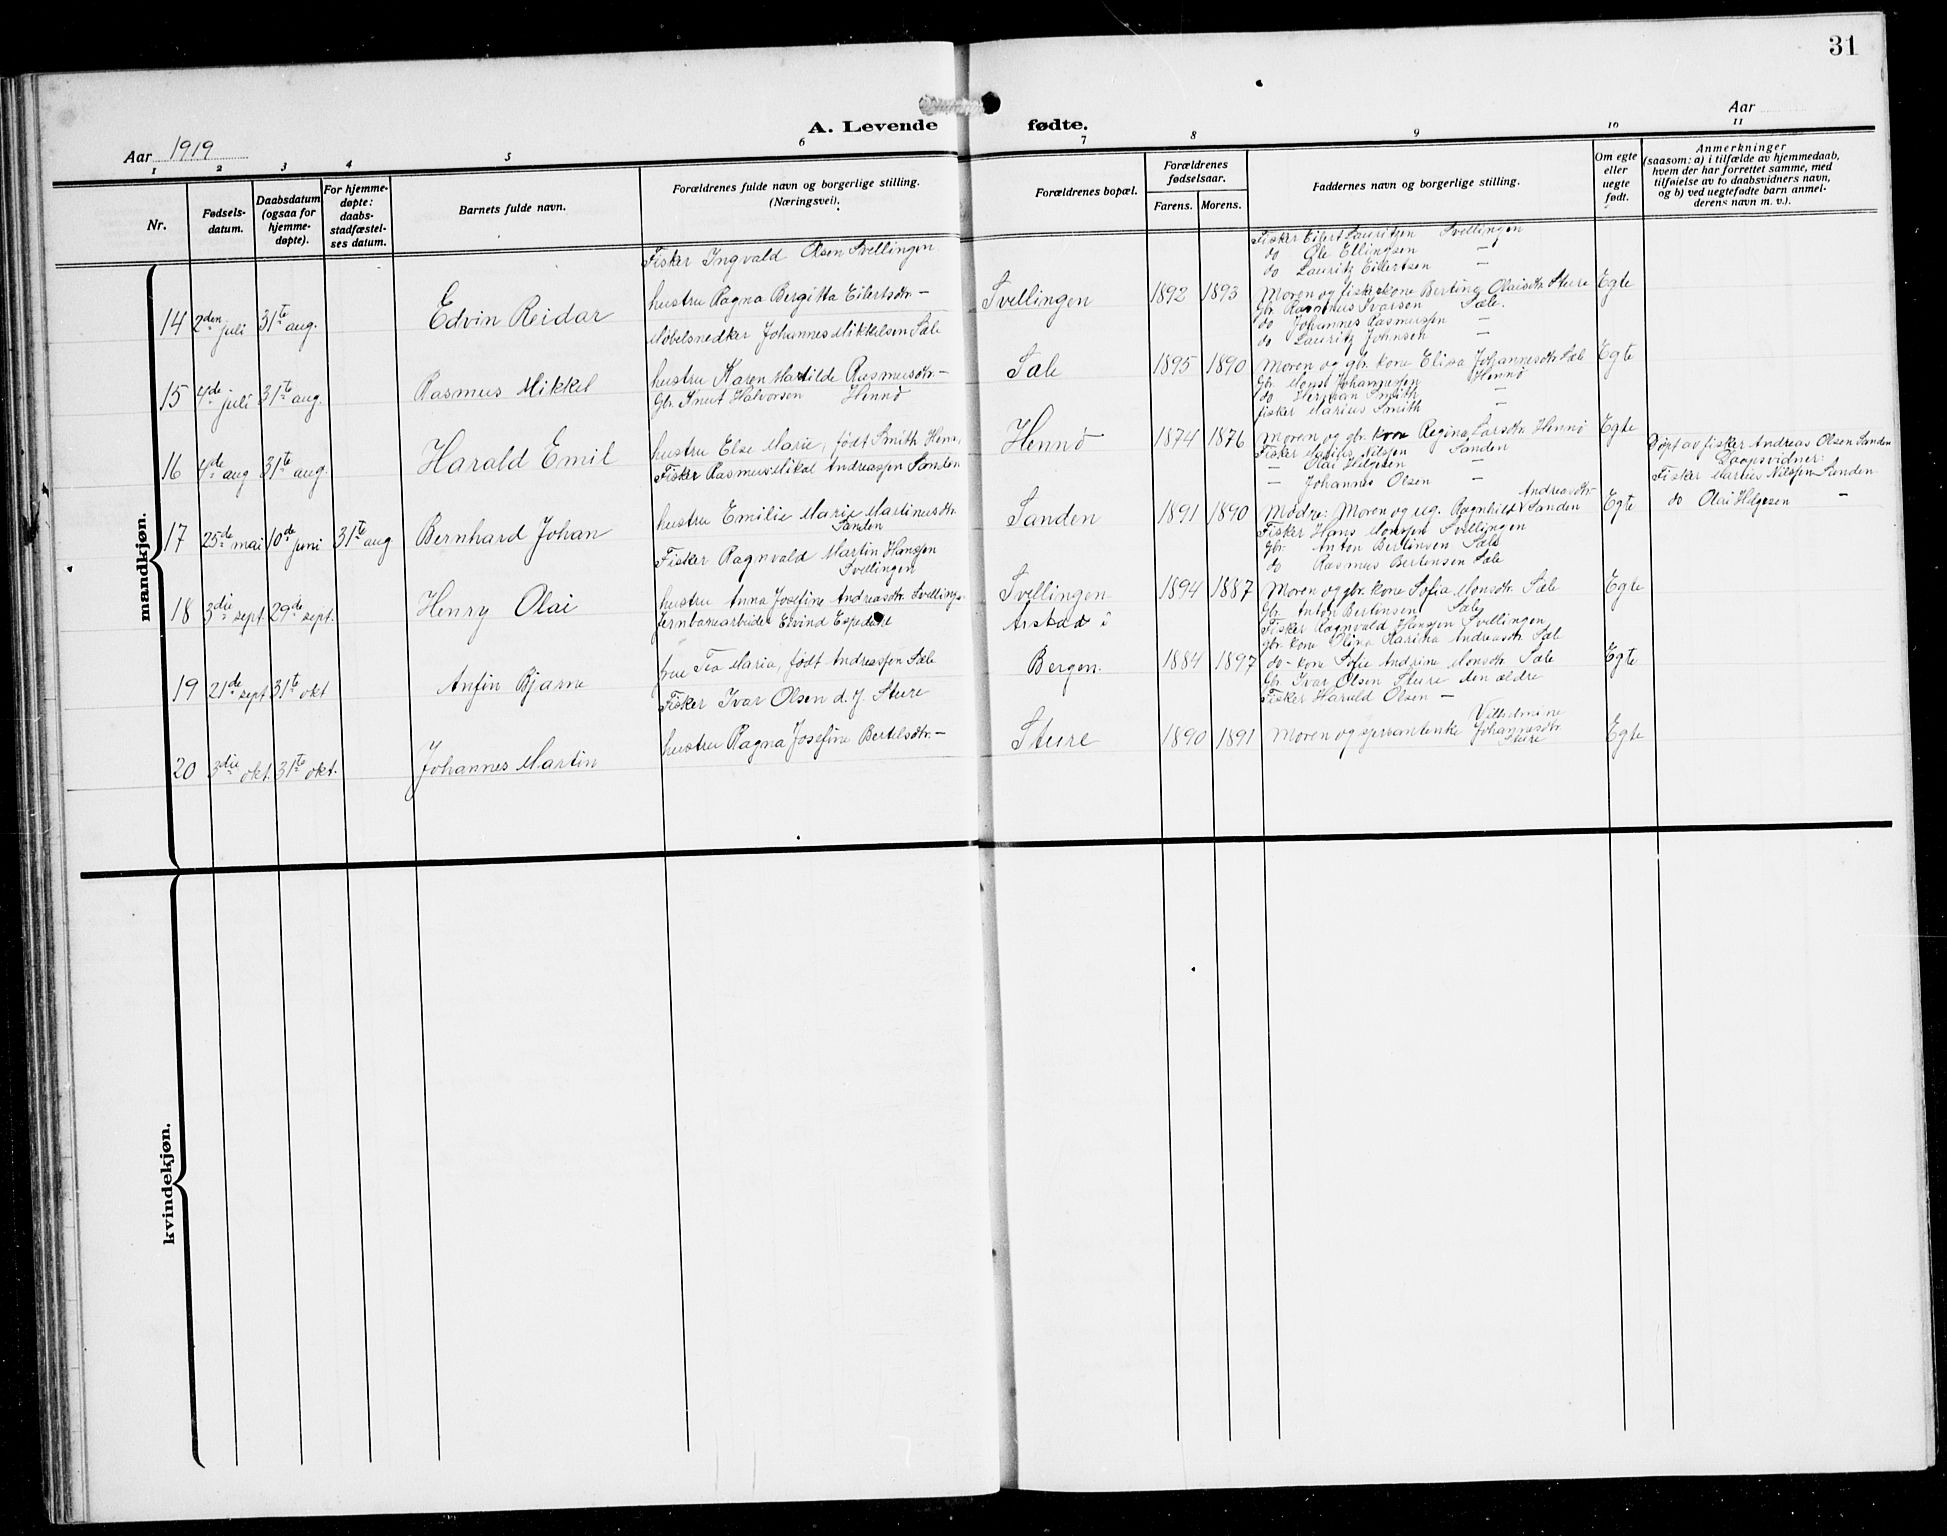 31
A. Levende fødte.
Aar 1919
Aar
1 2 3 4 5 6 7 8 9 10 11
Nr.
Fødsels-
datum.
Daabsdatum
(ogsaa for
hjemme-
døpte).
For hjemme-
døpte:
daabs-
stadfæstel-
ses datum.
Barnets fulde navn.
Forældrenes fulde navn og borgerlige stilling.
(Næringsvei).
Forældrenes bopæl.
Forældrenes
fødselsaar.
Farens. Morens.
Faddernes navn og borgerlige stilling.
Om egte
eller
uegte
født.
Anmerkninger
(saasom: a) i tilfælde av hjemmedaab,
hvem der har forrettet samme, med
tilføielse av to daabsvidners navn,
og b) ved uegtefødte barn anmel-
derens navn m. v.).
mandkjøn.
14 2den juli 31te aug. Edvin Reidar
Fisker Ingvald Olsen Svellingen
hustru Ragna Bergitta Eilertsdtr. —
Svellingen 1892 1893
Fisker Eilert Lauritsen Svellingen
do Ole Ellingsen —
do Lauritz Eilertsen —
Moren og fiskerkone Bertine Olaisdtr Sture
Egte
15 4de juli 31te aug. Rasmus Mikkel
Møbelsnedker Johannes Mikkelsen Sæle
hustru Karen Matilde Rasmusdtr. —
Sæle 1895 1890
Gbr. Rasmus Ivarsen Sæle.
do Johannes Rasmussen —
do Lauritz Johnsen —
Moren og gbr. kone Elisa Johannesdtr Sæle
Egte
16 4de aug 31te aug. Harald Emil
Gbr. Knut Halvorsen Hennø
hustru Else Marie, født Smith Henn.
Hennø 1874 1876
Gbr. Mons Johannessen Hennø
do Herman Smith —
fisker Marius Smith —
Moren og gbr. kone Regina Larsdtr Hennø
Egte
17 25de mai 10de juni 31te aug Bernhard Johan
Fisker Rasmus Mikal Andreassen Sanden
hustru Emilie Marie Martinusdtr.
Sanden
Sanden 1891 1890
Fisker Nilsen Sanden
— Olai Helgesen —
— Johannes Olsen —
Andreasdtr
Mødre: Moren og ug. Ragnhild Sanden
Egte
Døpt av fisker Andreas Olsen Sanden
Daapsvidner:
Fisker Marius Nilssen Sanden
do Olai Helgesen —
18 3die sept. 29de sept. Henry Olai
Fisker Ragnvald Martin Hanssen
Svellingen
hustru Anna Josefine Andreasdtr. Svelling.
Svellingen 1894 1887
Fisker Hans Monssen Svellingen
Gbr. Anton Bertinsen Sæle
do Rasmus Bertensen Sæle
Moren og gbr. kone Sofia Monsdtr. Sæle
Egte
19 21de sept 31te okt Anfin Bjarne
Jernbanearbeider Eivind Espedal
frue Tea Maria, født Andreassen Sæle
Årstad i
Bergen. 1884 1897
Gbr. Anton Bertinsen Sæle
Fisker Ragnvald Hanssen Svellingen
gbr. kone Olina Andreasdtr Sæle
do- kone Sofie Andrine Monsdtr Sæle
Egte
20 3die okt. 31te okt. Johannes Martin
Fisker Ivar Olsen d. y. Sture
hustru Ragna Josefine Bertelsdtr. —
Sture 1890 1891
Gbr. Ivar Olsen Sture den ældre
Fisker Harald Olsen —
Vilhelmine
Moren og Johannesdtr
Sture
Egte
kvindekjøn.